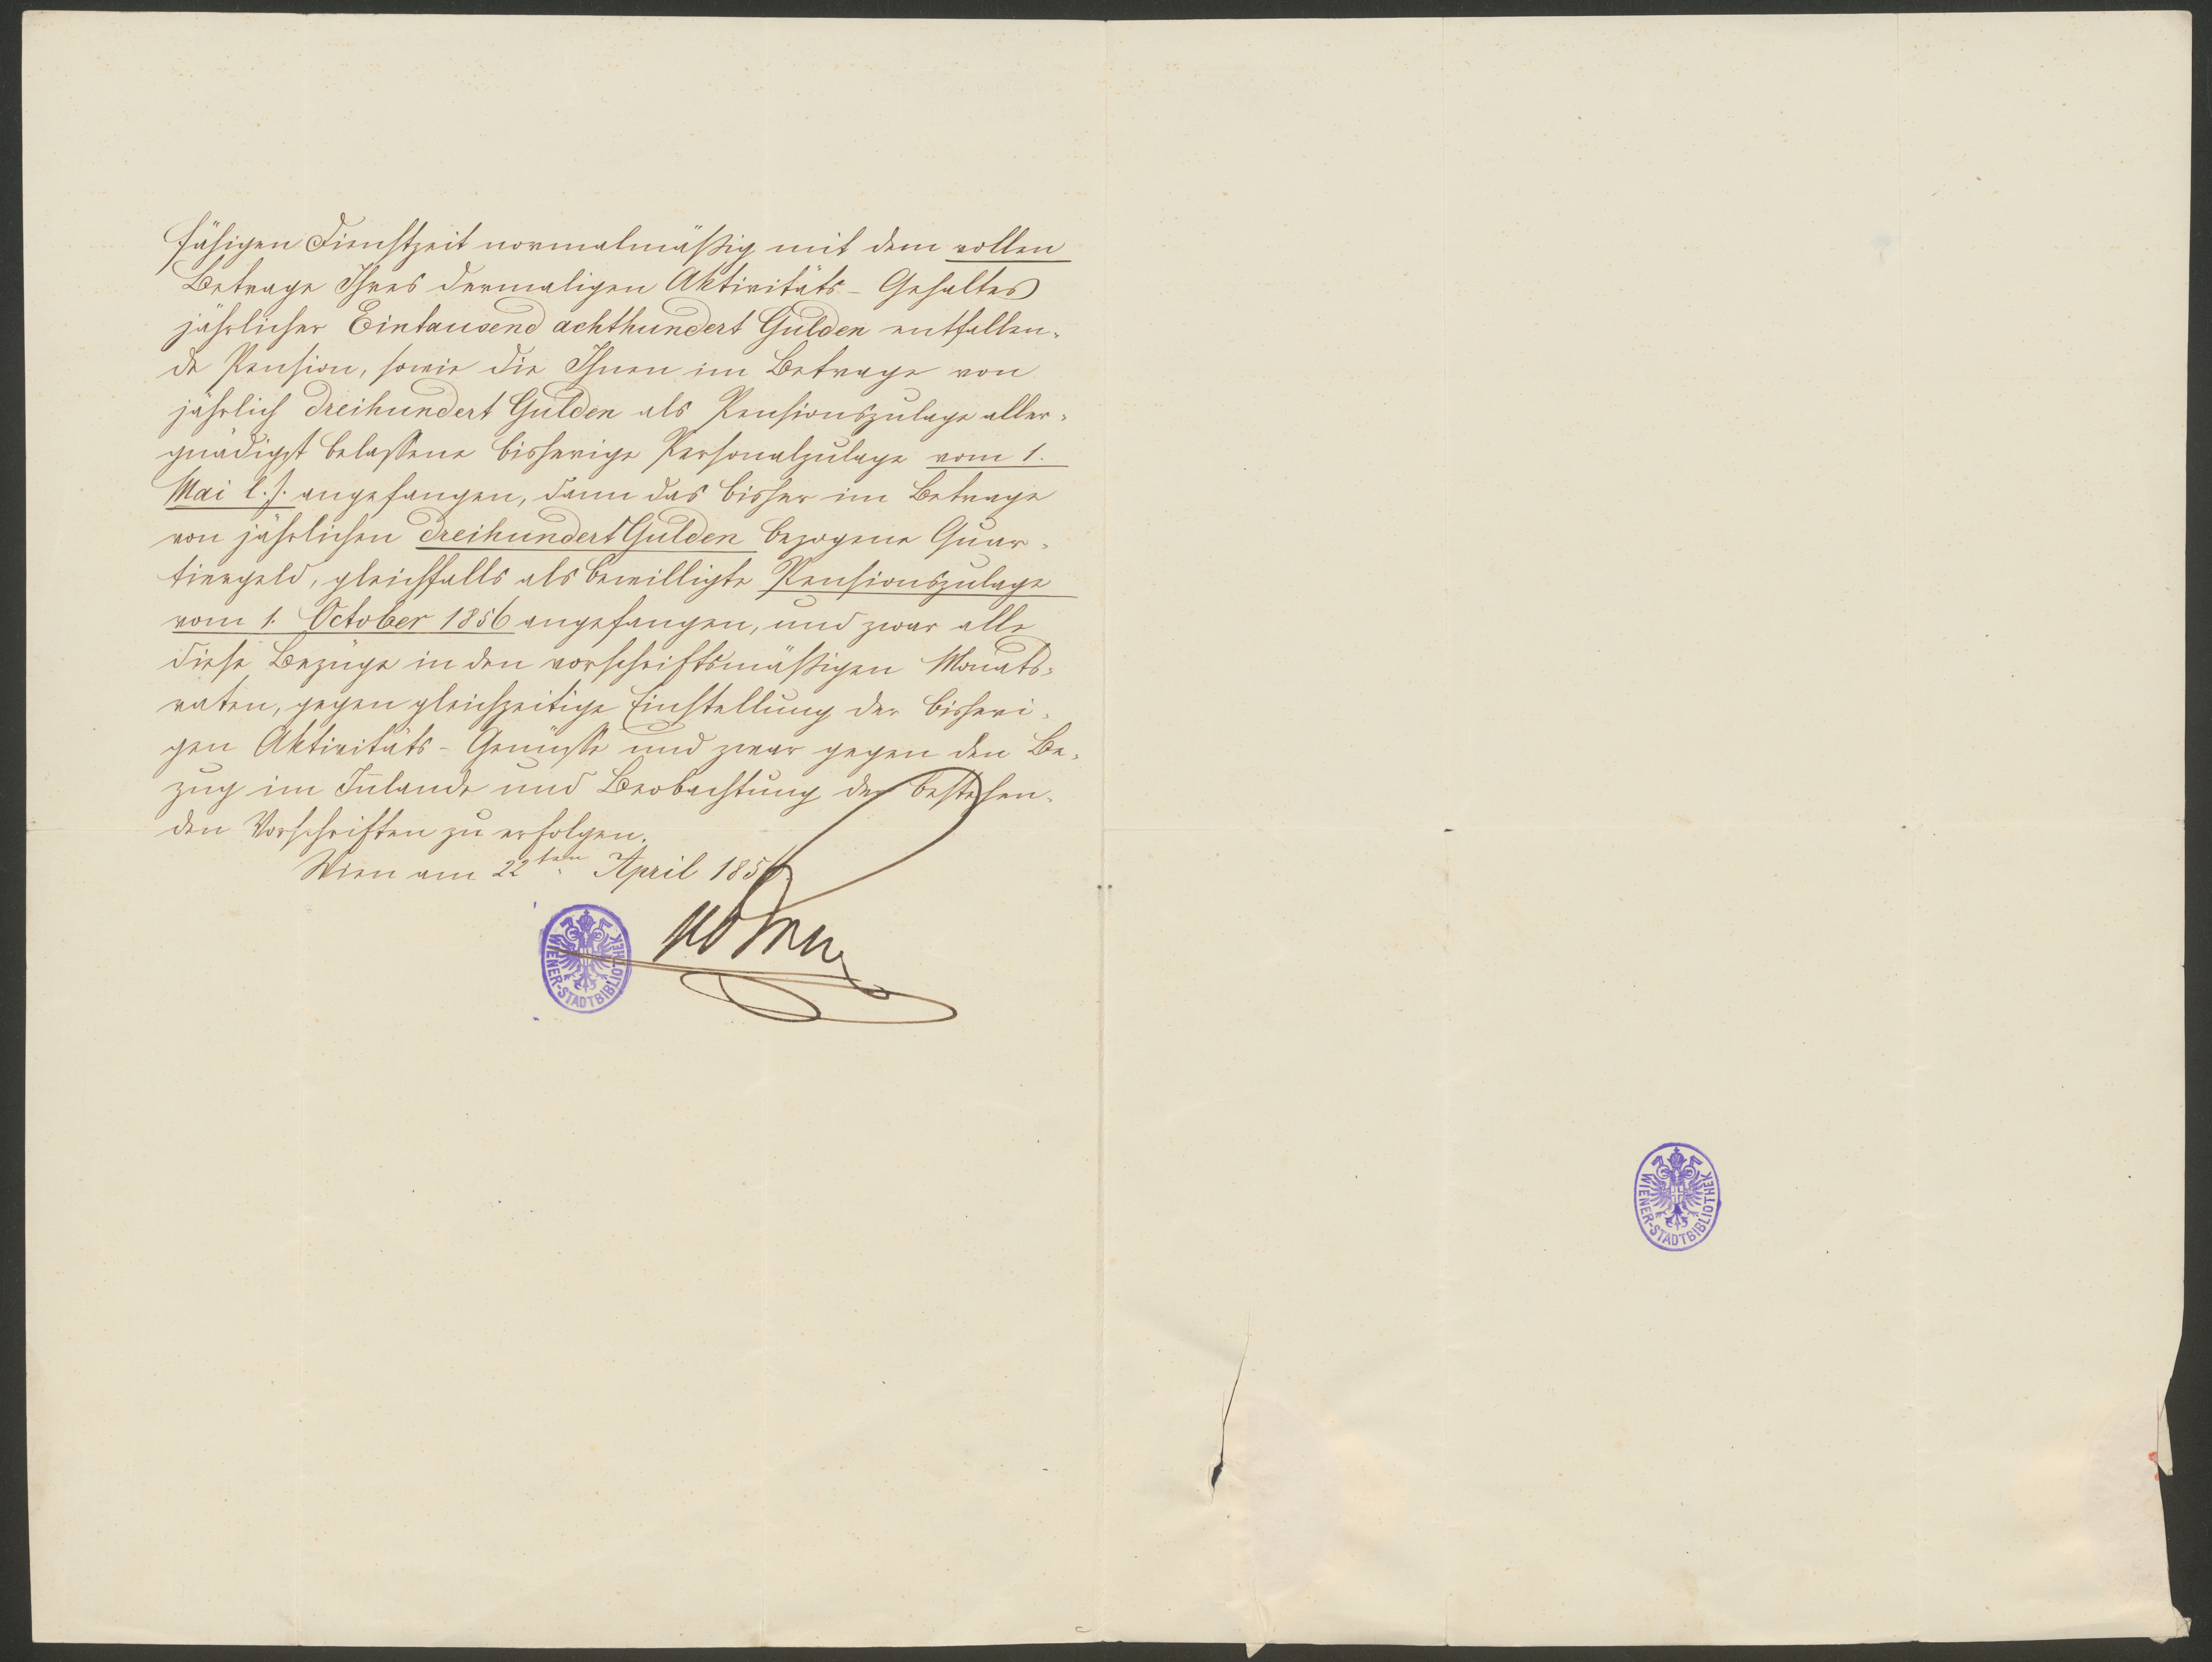 fähigen Dienstzeit normalmäßig mit dem vollen
Betrage Ihres dermaligen Aktivitäts-Gehaltes
jährlicher Eintausend achthundert Gulden entfallen-
de Pension, sowie die Ihnen im Betrage von
jährlich dreihundert Gulden als Pensionszulage aller-
gnädigst belassene bisherige Personalzulage vom 1.
Mai l. J. angefangen, dann das bisher im Betrage
von jährlichen dreihundert Gulden bezogene Quar-
tiergeld, gleichfalls als bewilligte Pensionszulage
vom 1. October 1856 angefangen, und zwar alle
diese Bezüge in den vorschriftsmäßigen Monats-
raten, gegen gleichzeitige Einstellung der bisheri-
gen Aktivitäts-Genüsse und zwar gegen den Be-
zug im Inlande und Beobachtung der bestehen-
den Vorschriften zu erfolgen.
Wien am 22ten April 1856
WIENER-STADTBIBLIOTHEK
WIENER-STADTBIBLIOTHEK